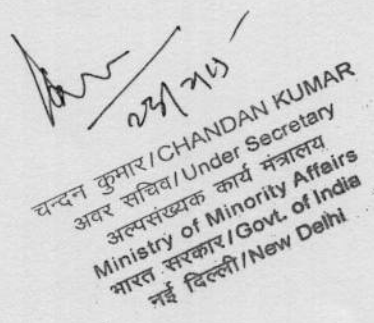 चन्दन कुमार/CHANDAN KUMAR
अवर सचिव/Under Secretary
अल्पसंख्यक कार्य मंत्रालय
Ministry of Minority Affairs
भारत सरकार/Govt. of India
नई दिल्ली/New Delhi